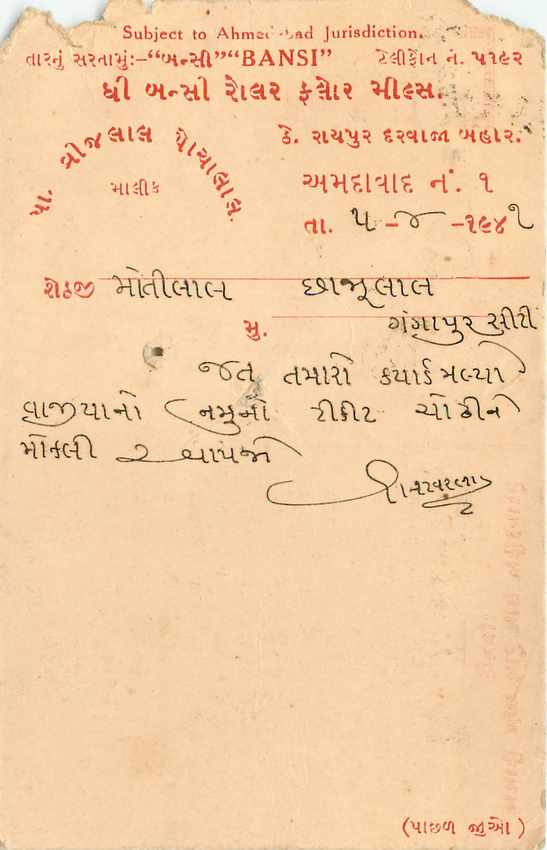 Subject to Ahmedabad Jurisdiction.
તારનું સરતામું:–“બન્સી”“BANSI” ટેલીફોન નં. ૫૧૯૨
ધી બન્સી રોલર ફલોર મીલ્સ.
પા. વ્રીજલાલ પોચાલાલ.
માલીક
ઠે. રાયપુર દરવાજા બહાર.
અમદાવાદ નં. ૧
તા. ૫-૪-૧૯૪૧
શેઠજી મોતીલાલ છાજૂલાલ
મુ. ગંગાપુર સીટી
જત તમારો કયાર્ડ મલ્યો
નમુનો ટીકીટ ચોઢીને
મોકલી
(પાછળ જીઓ)